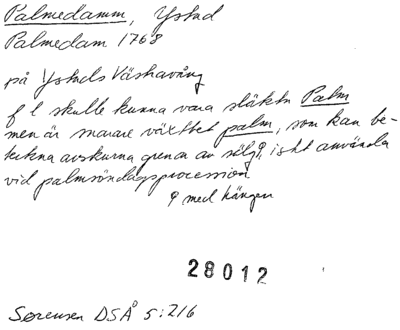 Palmedamm, Ystad
Palmedam 1768
på Ystads Västravång
f l skulle kunna vara släktn Palm
men är snarare växtbet palm, som kan be-
teckna avskurna grenar av sälg ♀, isht använda
vid palmsöndagsprocession
♀ med hängen
28012
Sørensen DSÅ 5:216